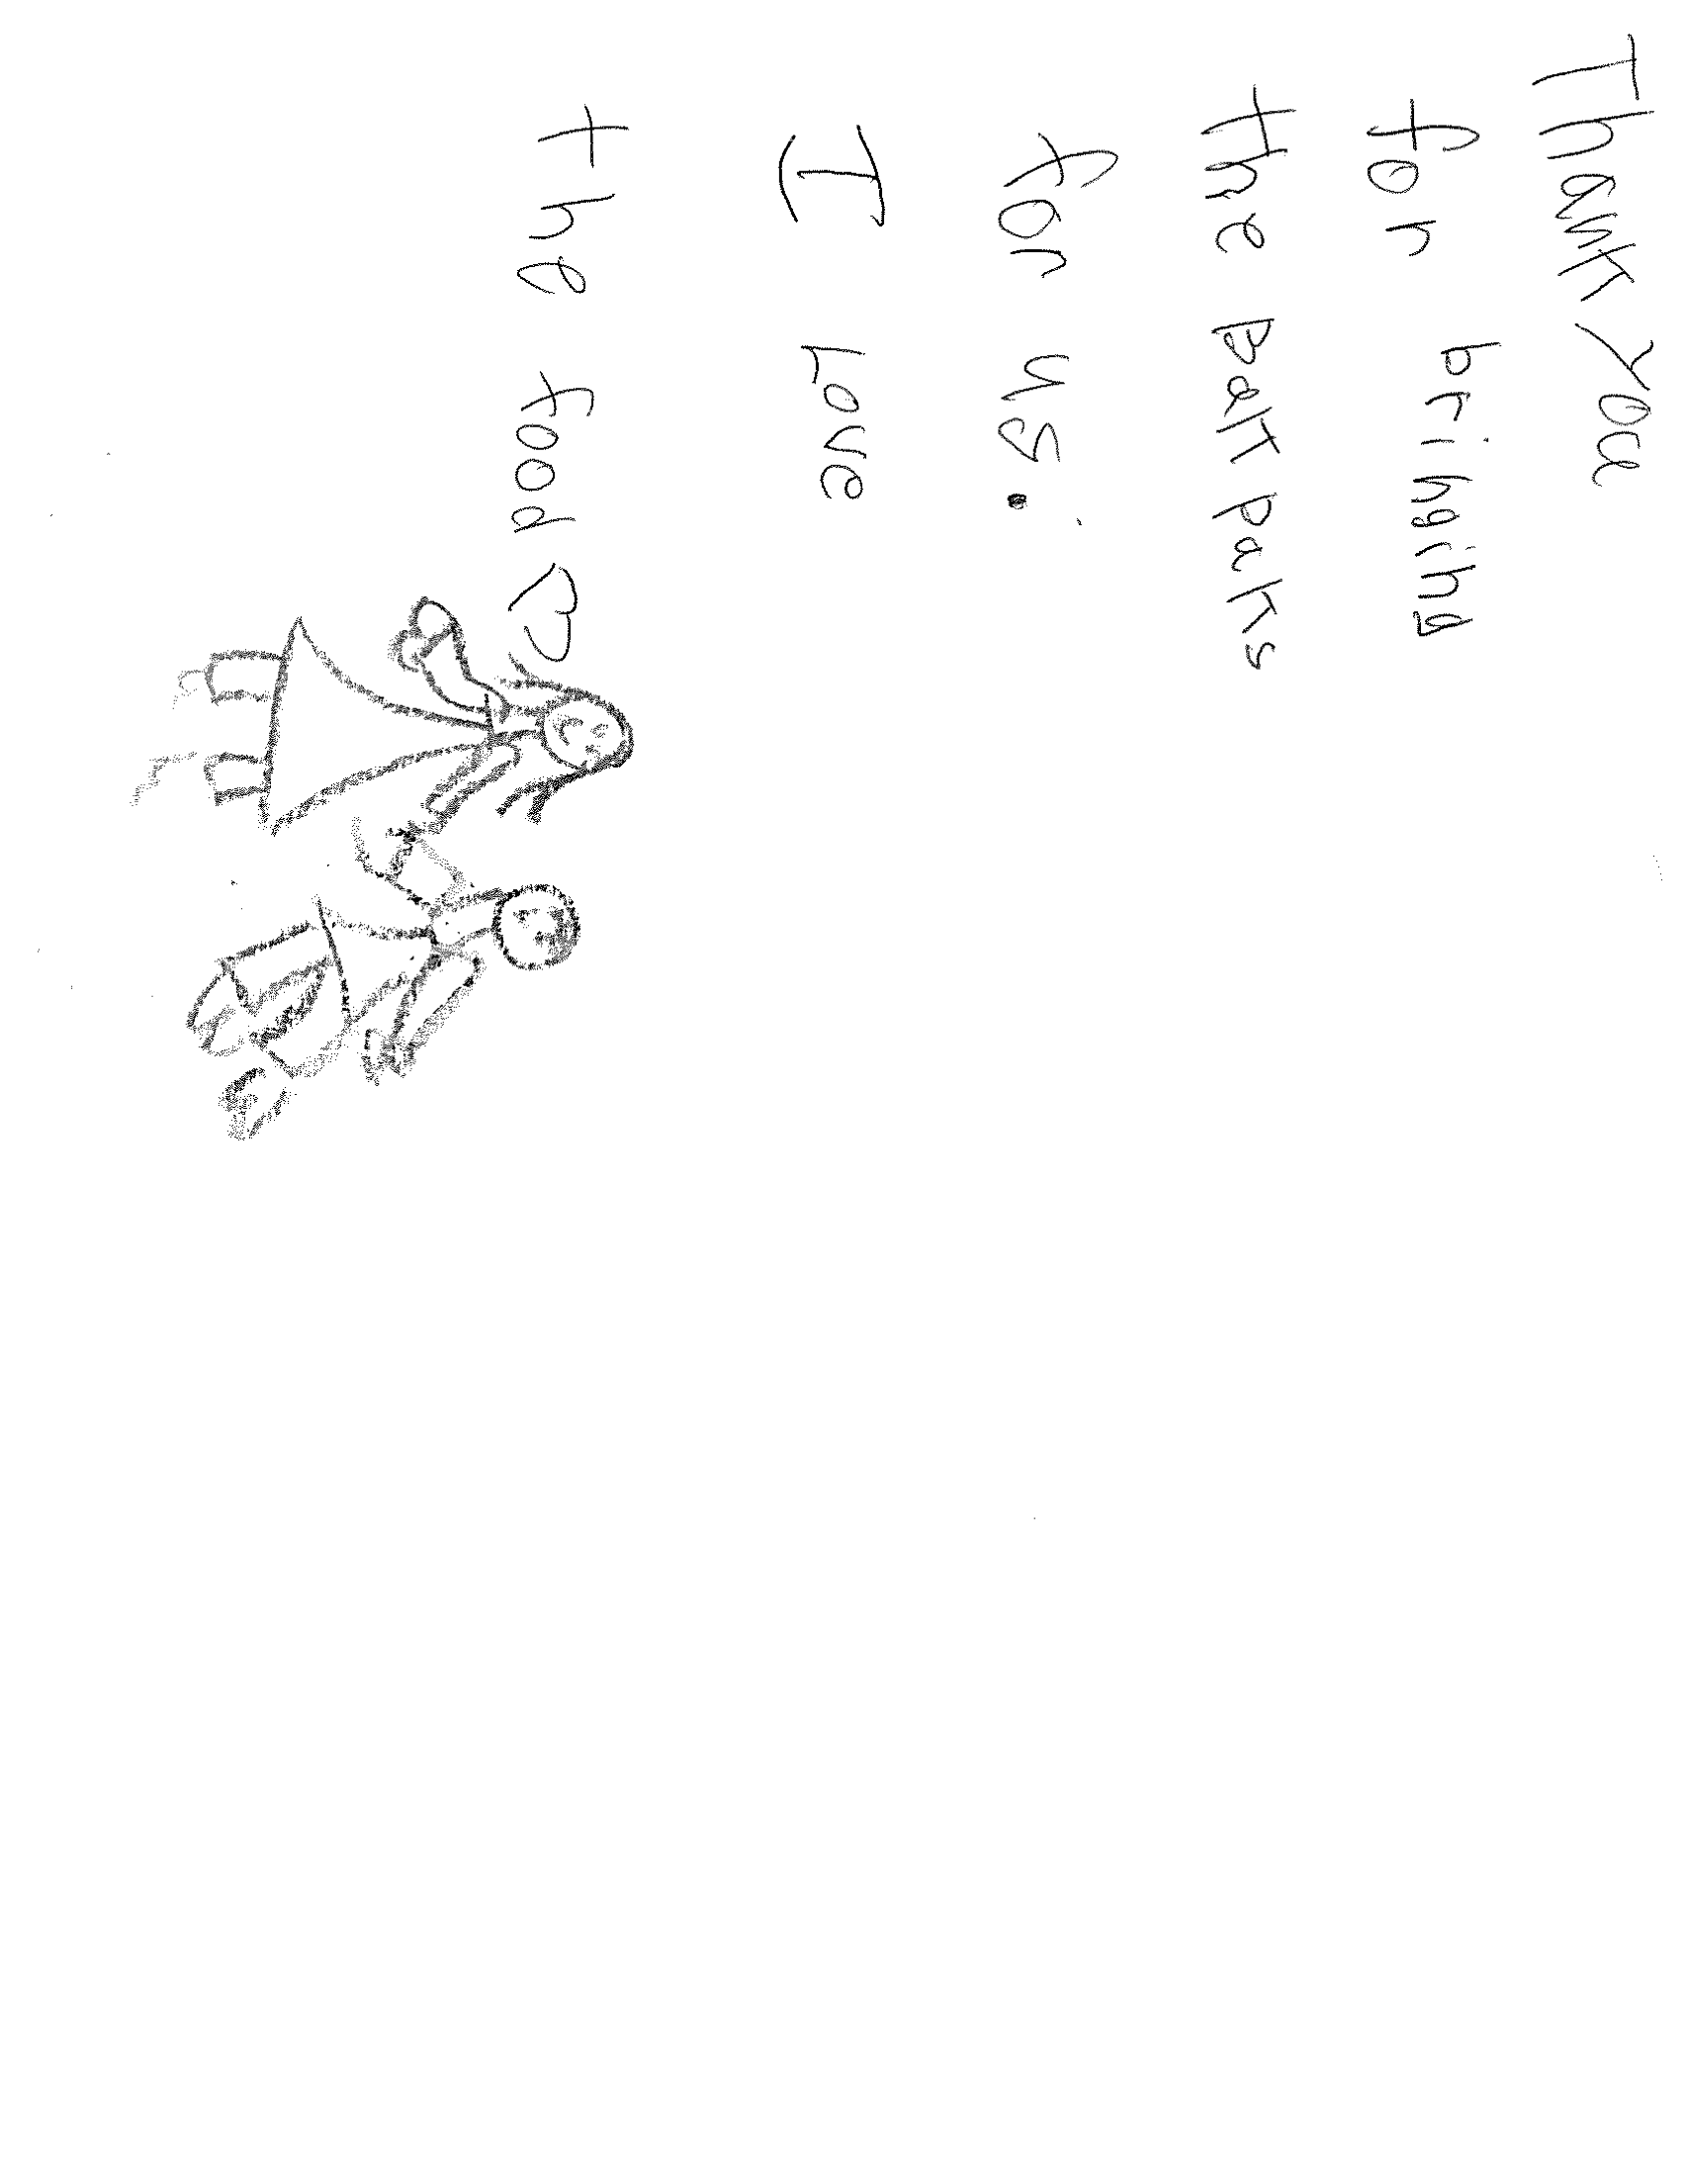 Thank You
for bringing
the BaKpaks
for us.
I Love
the food